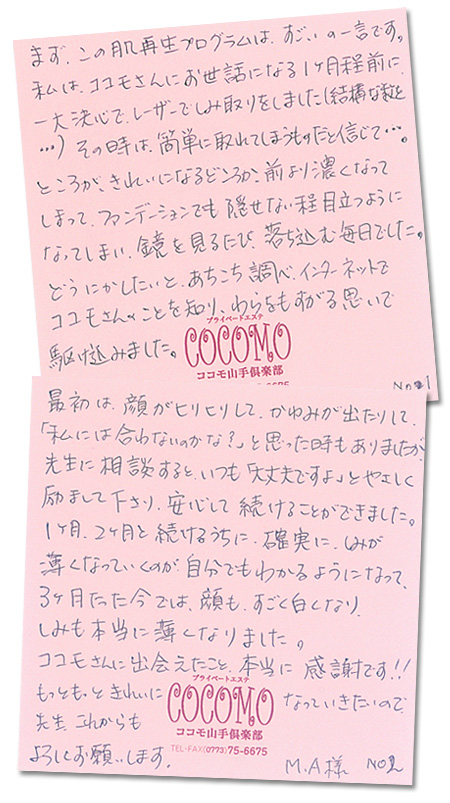 まず、この肌再生プログラムは、すごいの一言です。
私は、ココモさんにお世話になる1ヶ月程前に、
一大決心で、レーザーでしみ取りをしました(結構な数を
…)その時は、簡単に取れてしまうものだと信じて…。
ところが、きれいになるどころか、前より濃くなって
しまって、ファンデーションでも隠せない程目立つように
なってしまい、鏡を見るたび、落ち込む毎日でした。
どうにかしたいと、あちこち調べ、インターネットで
ココモさんのことを知り、わらをもすがる思いで
駆け込みました。
プライベートエステ
COCOMO
ココモ山手倶楽部
No.1
最初は、顔がヒリヒリして、かゆみが出たりして、
「私には合わないのかな?」と思った時もありましたが、
先生に相談すると、いつも「大丈夫ですよ」とやさしく
励まして下さり、安心して続けることができました。
1ヶ月、2ヶ月と続けるうちに、確実に、しみが
薄くなっていくのが、自分でもわかるようになって、
3ヶ月たった今では、顔も、すごく白くなり、
しみも本当に薄くなりました。
ココモさんに出会えたこと、本当に感謝です!!
もっともっときれいになっていきたいので、
プライベートエステ
COCOMO
ココモ山手倶楽部
TEL・FAX(0773)75-6675
先生、これからも
よろしくお願いします。
M.A様 No2